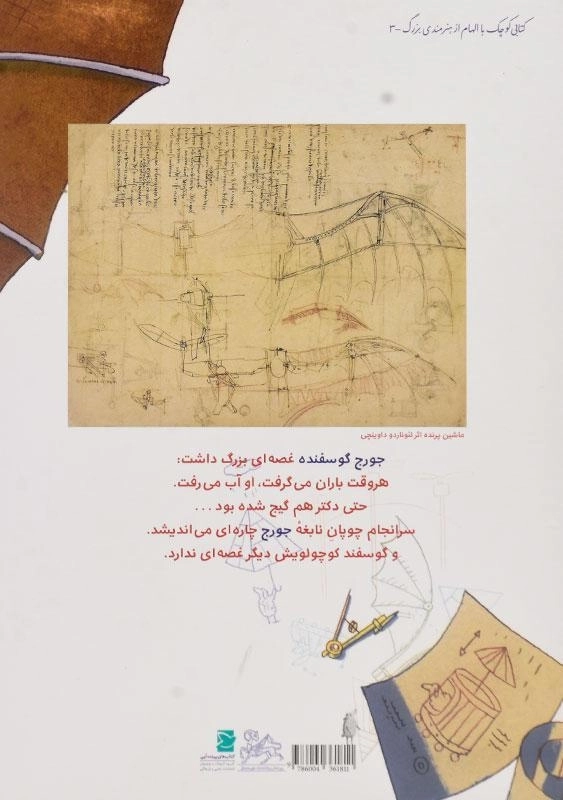 کتابی کوچک با الهام از هنرمندی بزرگ -۳
ماشین پرنده اثر لئوناردو داوینچی
جورج گوسفنده غصه‌ای بزرگ داشت:
هروقت باران می‌گرفت، او آب می‌رفت.
حتی دکتر هم گیج شده بود ...
سرانجام چوپان نابغهٔ جورج چاره‌ای می‌اندیشد.
و گوسفند کوچولویش دیگر غصه‌ای ندارد.
9 786004 361811